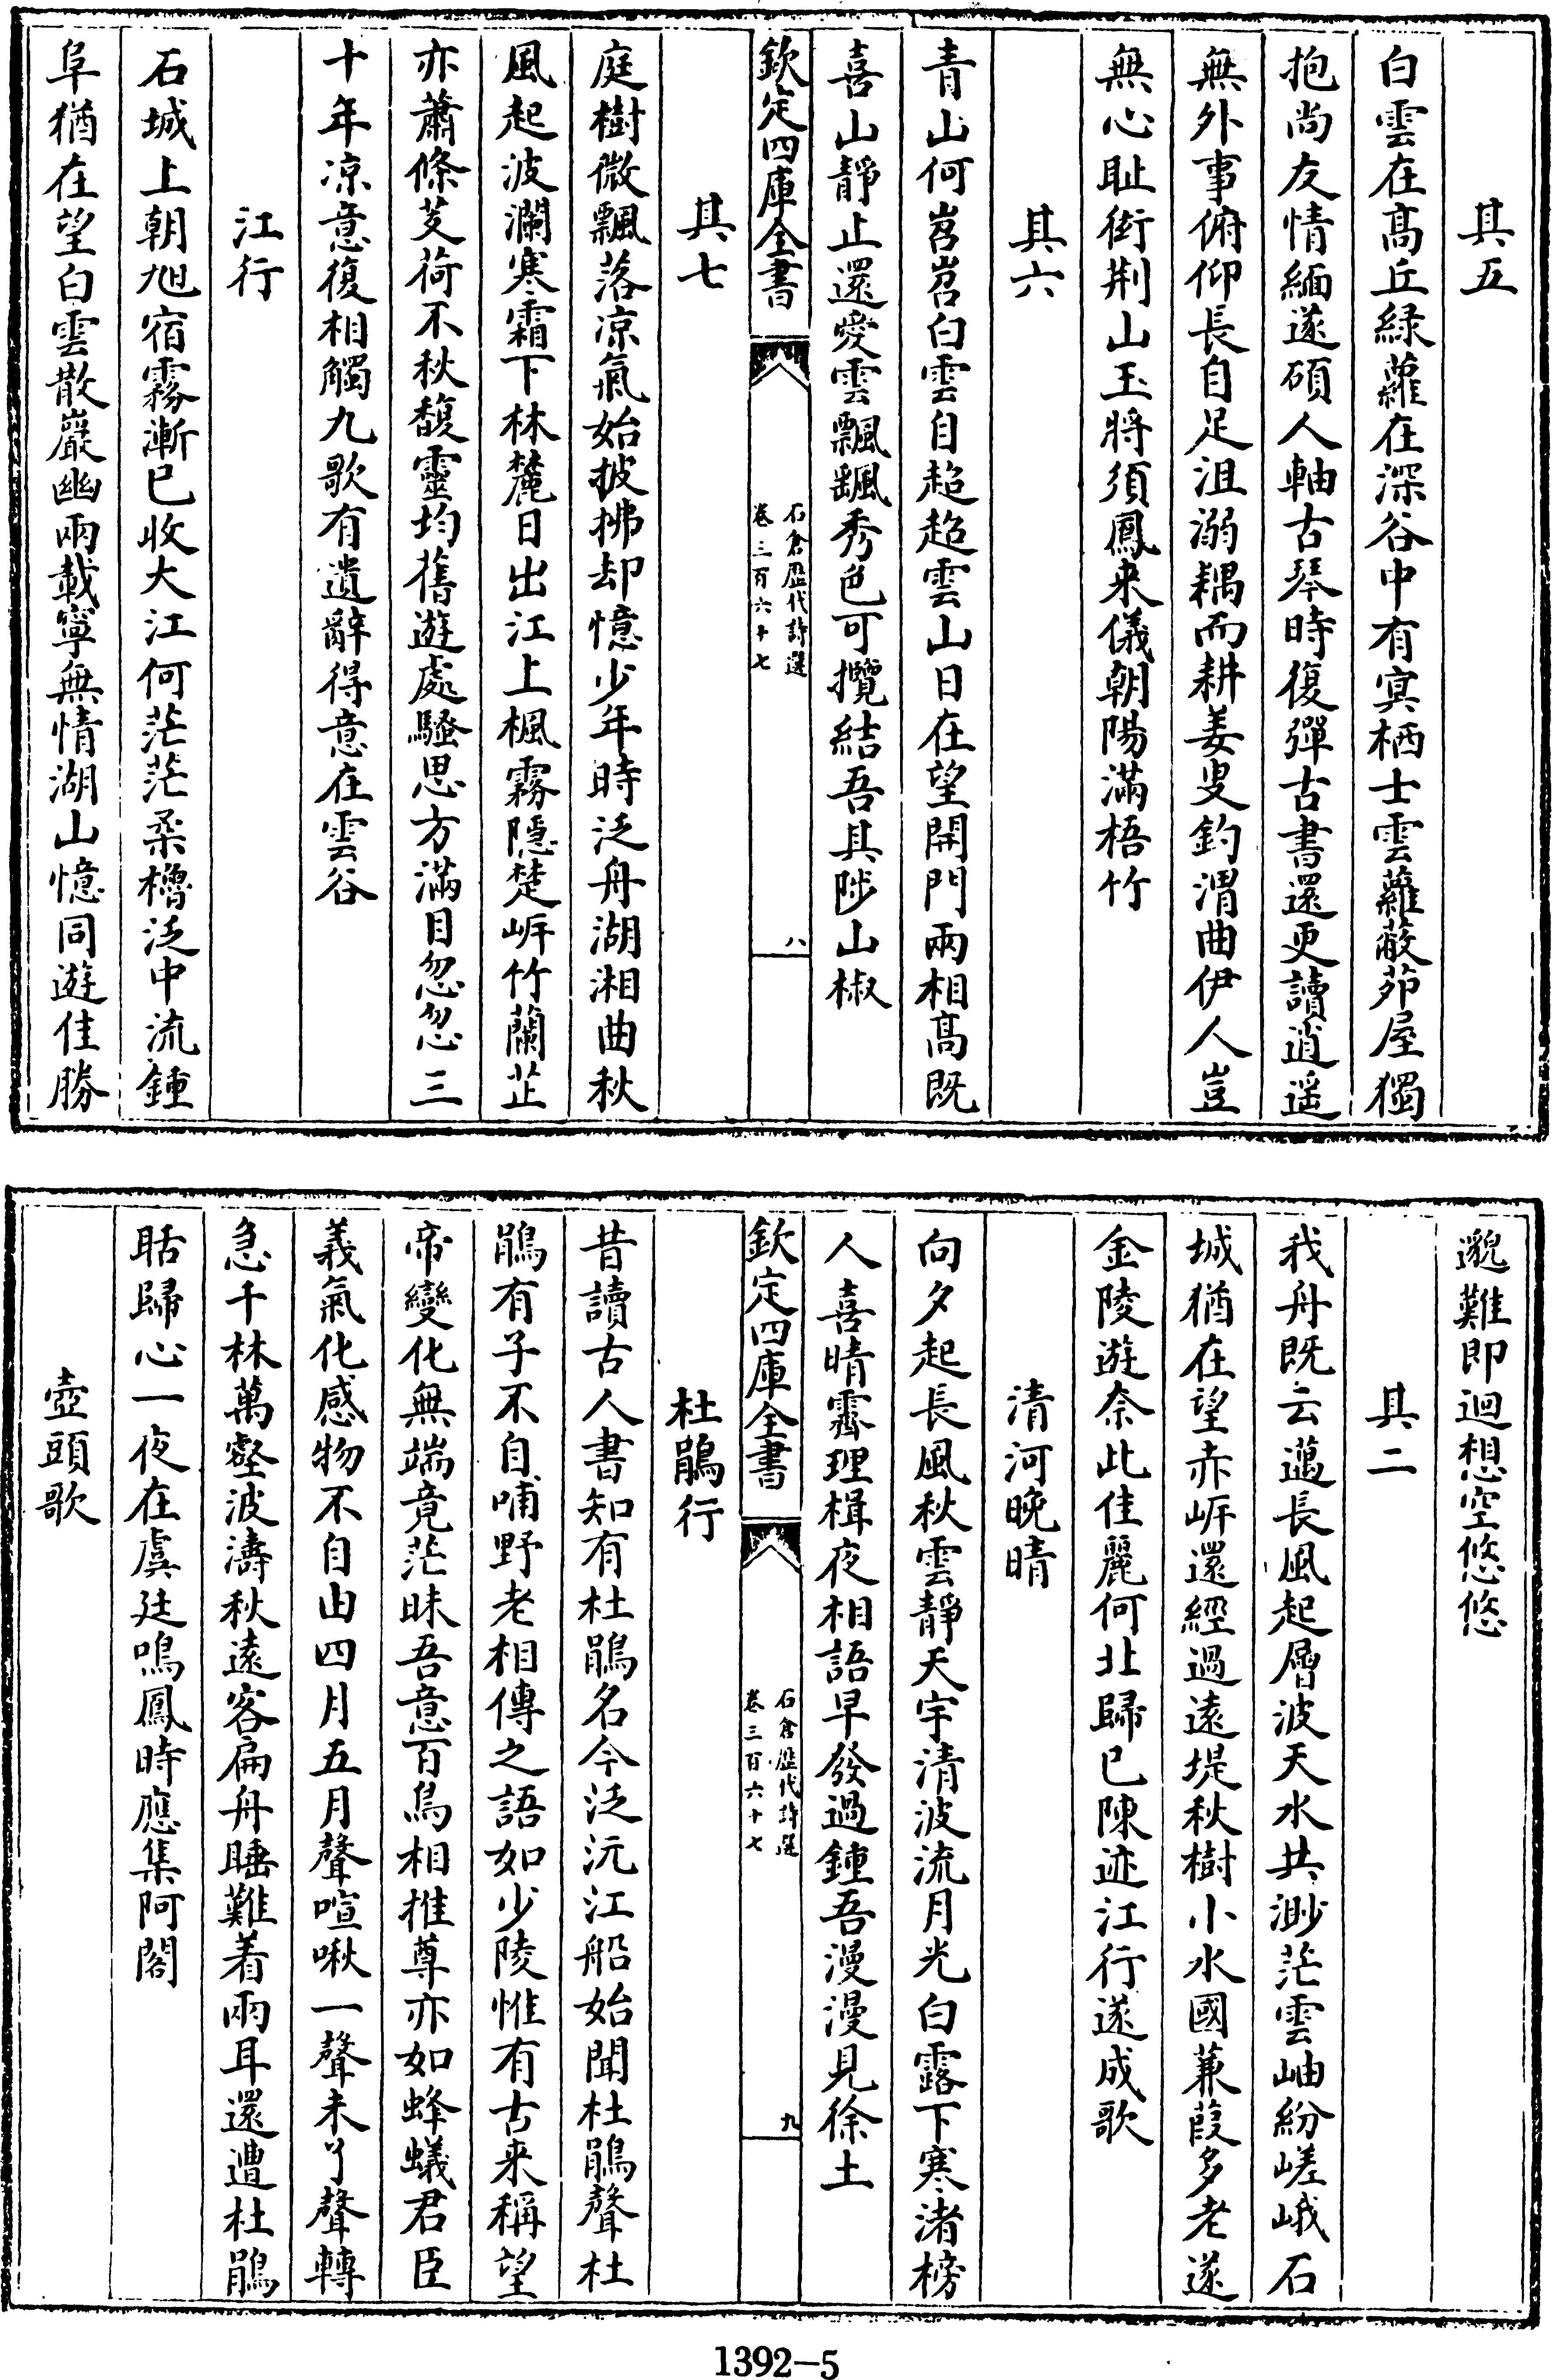 其五
白雲在髙丘緑蘿在深谷中有㝠栖士雲蘿蔽茆屋獨
抱尚友情緬遂碩人軸古琴時復彈古書還更讀逍遥
無外事俯仰長自足沮溺耦而耕姜叟釣渭曲伊人豈
無心耻衒荆山玉將須鳳来儀朝陽滿梧竹
其六
青山何岧岧白雲自超超雲山日在望開門兩相髙既
喜山靜止還愛雲飄飖秀色可攬結吾其陟山椒
欽定四庫全書
石倉歴代詩選
卷三百六十七
八
其七
庭樹微飄落凉氣始披拂却憶少年時泛舟湖湘曲秋
風起波瀾寒霜下林麓日出江上楓霧隱楚㟁竹蘭芷
亦蕭條芰荷不秋馥靈均舊遊處騷思方滿目忽忽三
十年凉意復相觸九歌有遺辭得意在雲谷
江行
石城上朝旭宿霧漸已收大江何茫茫柔櫓泛中流鍾
阜猶在望白雲散巖幽兩載寧無情湖山憶同遊佳勝
邈難即迴想空悠悠
其二
我舟既云邁長風起層波天水共渺茫雲岫紛嵯峨石
城猶在望赤㟁還經過逺堤秋樹小水國蒹葭多老遂
金陵遊奈此佳麗何北歸已陳迹江行遂成歌
清河晚晴
向夕起長風秋雲靜天宇清波流月光白露下寒渚榜
人喜晴霽理楫夜相語早發過鍾吾漫漫見徐土
欽定四庫全書
石倉歴代詩選
卷三百六十七
九
杜鵑行
昔讀古人書知有杜鵑名今泛沅江船始聞杜鵑聲杜
鵑有子不自哺野老相傳之語如少陵惟有古来稱望
帝變化無端竟茫昧吾意百鳥相推尊亦如蜂蟻君臣
義氣化感物不自由四月五月聲喧啾一聲未了聲轉
急千林萬壑波濤秋逺客扁舟睡難着兩耳還遭杜鵑
聒歸心一夜在虞廷鳴鳳時應集阿閣
壺頭歌
1392-5